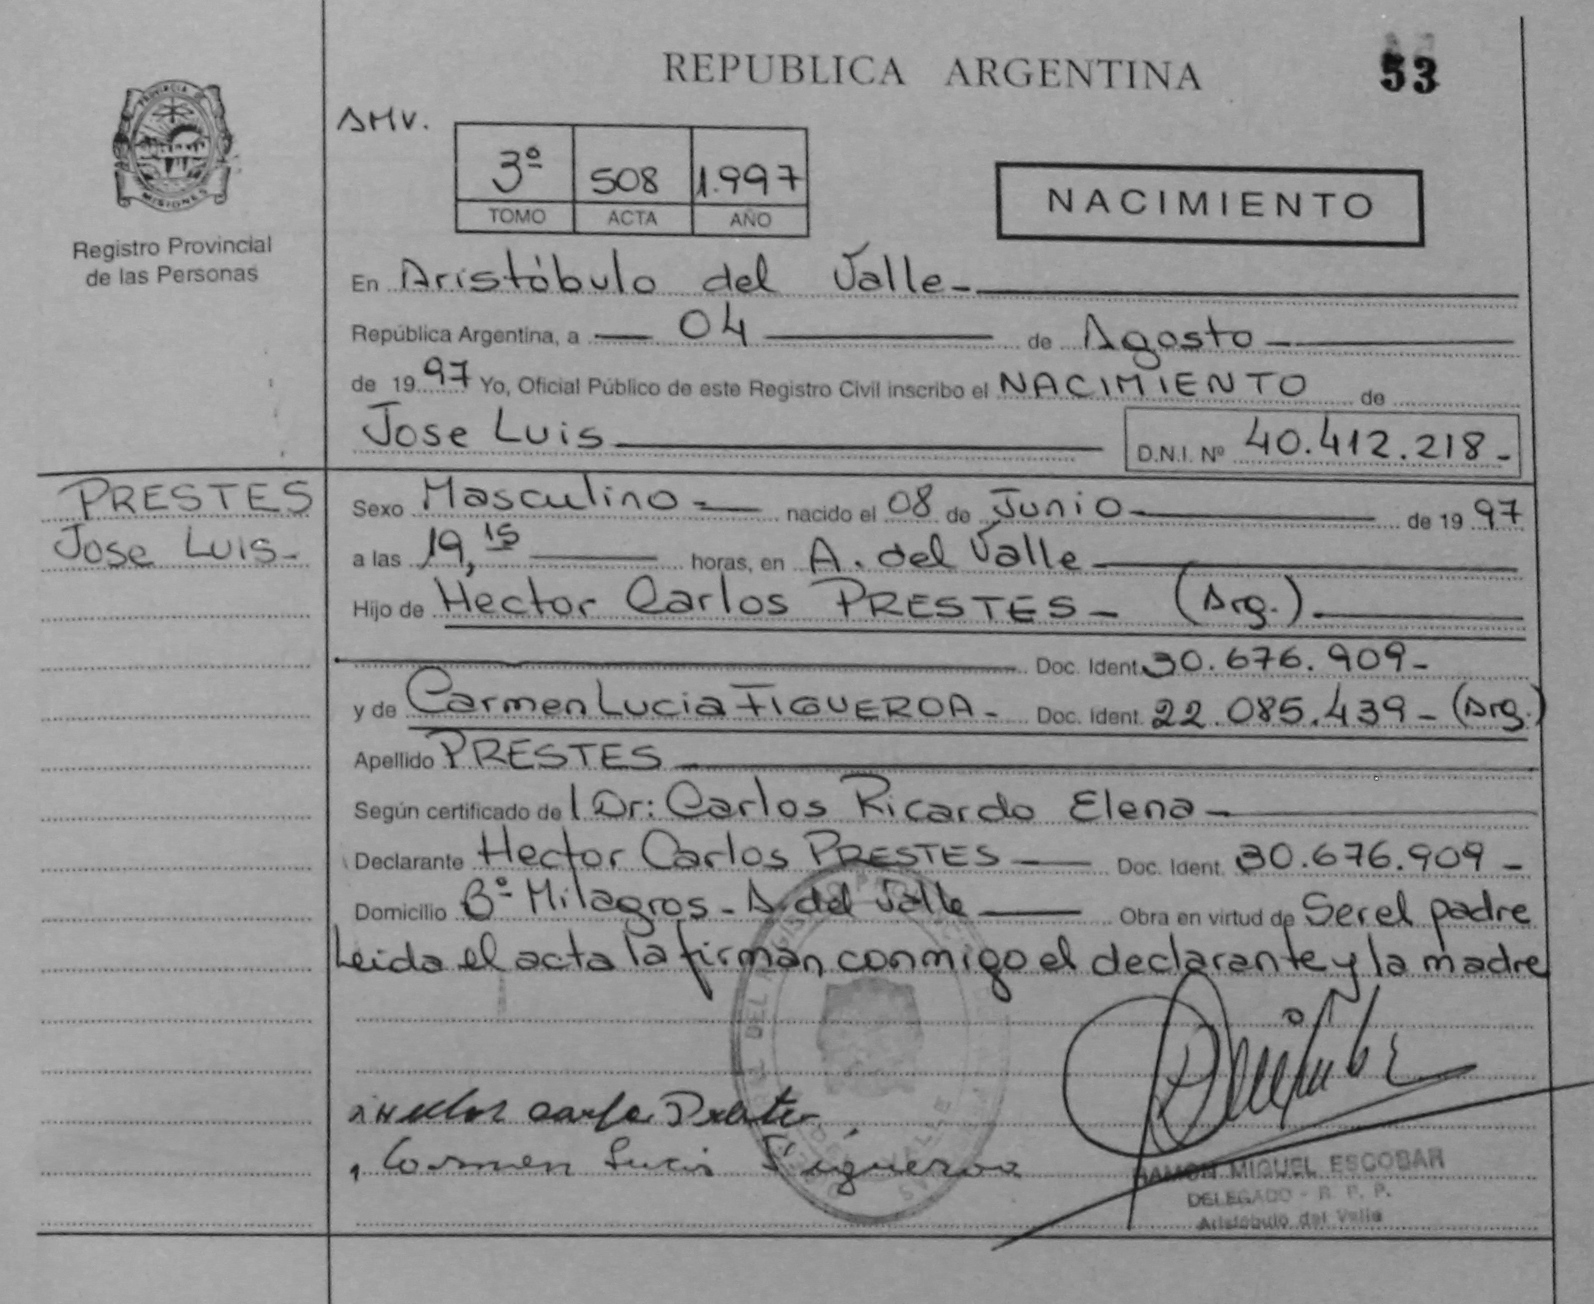 REPUBLICA ARGENTINA
53
PROVINCIA DE
MISIONES
Registro Provincial
de las Personas
AMV.
3º 508 1.997
TOMO ACTA AÑO
NACIMIENTO
En Aristóbulo del Valle-
República Argentina, a 04 de Agosto
de 1997 Yo, Oficial Público de este Registro Civil inscribo el NACIMIENTO de
Jose Luis D.N.I. Nº 40.412.218-
PRESTES
Jose Luis-
Sexo Masculino nacido el 08 de Junio de 1997
a las 19,15 horas, en A. del Valle
Hijo de Hector Carlos PRESTES- (Arg.)
Doc. Ident. 30.676.909-
y de Carmen Lucia FIGUEROA- Doc. Ident. 22.085.439- (Arg.)
Apellido PRESTES
Según certificado de l Dr: Carlos Ricardo Elena-
Declarante Hector Carlos PRESTES Doc. Ident. 30.676.909-
Domicilio Bº Milagros- A. del Valle Obra en virtud de Ser el padre
Leida el acta la firman conmigo el declarante y la madre
Carmen Lucia Figueroa
RAMON MIGUEL ESCOBAR
DELEGADO - R. P. P.
Aristóbulo del Valle